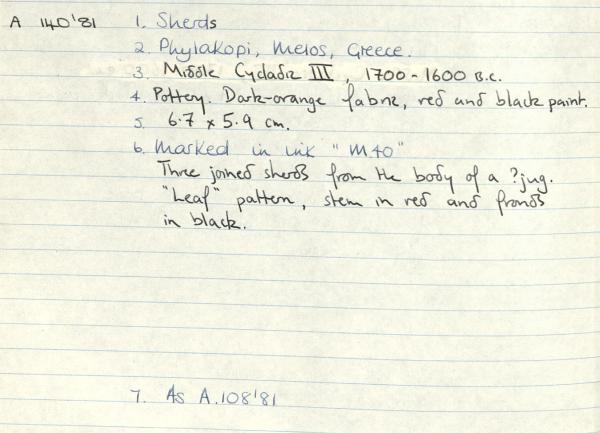 A 140'81 1. Sherds
2. Phylakopi, Melos, Greece.
3. Middle Cycladic III, 1700-1600 B.C.
4. Pottery. Dark-orange fabric, red and black paint.
5. 6.7 x 5.9 cm.
6. Marked in ink "M.40"
Three joined sherds from the body of a ?jug.
"Leaf" pattern, stem in red and fronds
in black.
7. As A.108'81